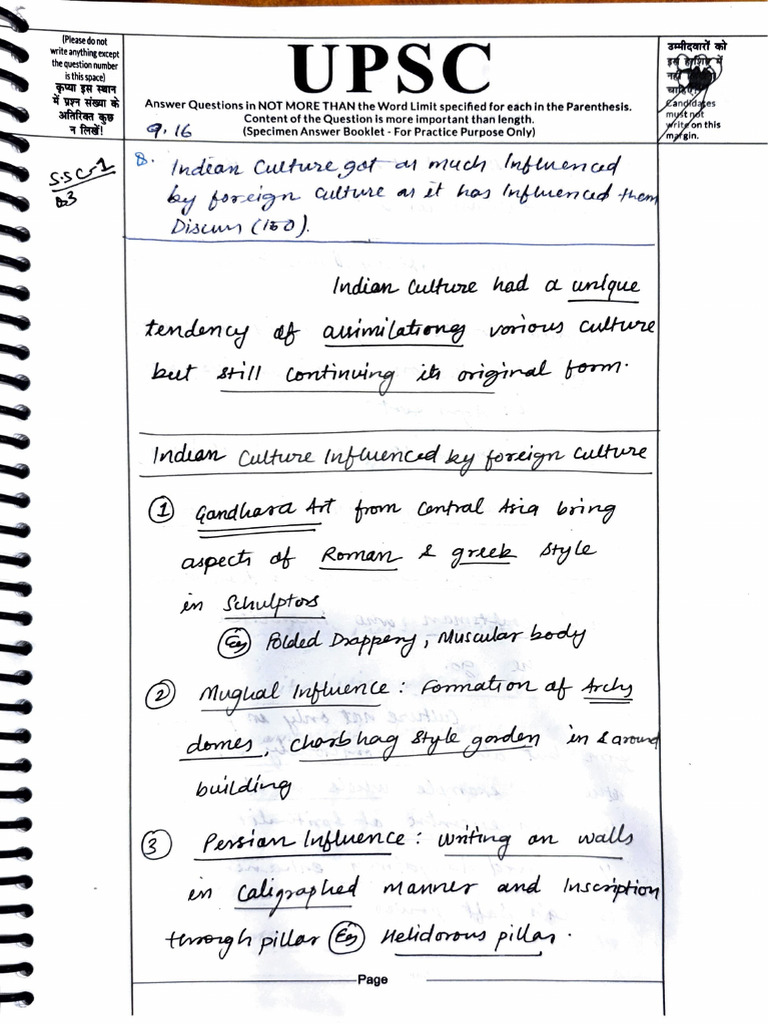 (Please do not
write anything except
the question number
is this space)
कृप्या इस स्थान
में प्रश्न संख्या के
अतिरिक्त कुछ
न लिखें!
UPSC
Answer Questions in NOT MORE THAN the Word Limit specified for each in the Parenthesis.
Content of the Question is more important than length.
(Specimen Answer Booklet - For Practice Purpose Only)
उम्मीदवारों को
इस हाशिए में
नहीं
चाहिए
Candidates
must not
write on this
margin.
9.16
8. Indian Culture got as much Influenced
by foreign culture as it has Influenced them
Discuss (150).
Indian Culture had a unique
tendency of assimilationg various culture
but still continuing its original form.
Indian Culture Influenced by foreign culture
① Gandhara Art from Central Asia bring
aspects of Roman & greek style
in Schulptors
Eg Folded Drappery, Muscular body
② Mughal Influence : Formation of Archs
domes, charbhag style garden in & around
building
③ Persian Influence : writing on walls
in Caligraphed manner and Inscription
through pillar Eg Helidorous pillar.
Page